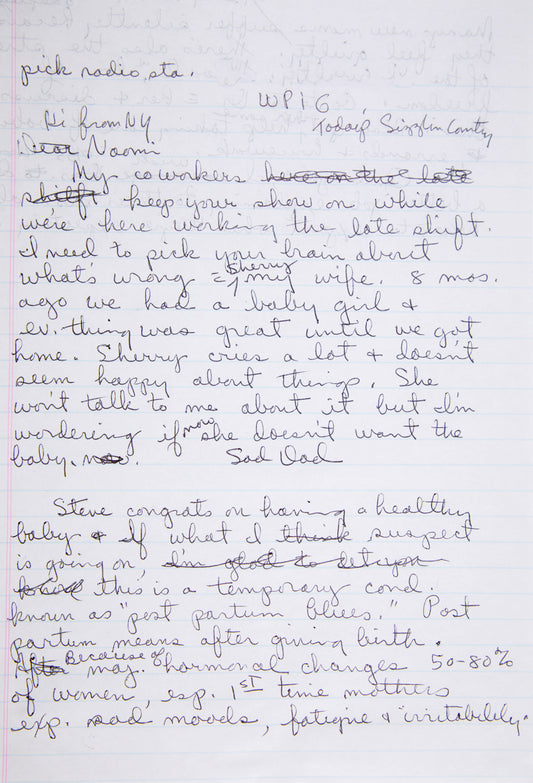 pick radio sta.
WPIG,
Hi from NY Today's Sizzlin Country
Dear Naomi
My coworkers here on the late
shift keep your show on while
we're here working the late shift.
I need to pick your brain about
what's wrong = Sherry, my wife. 8 mos.
ago we had a baby girl &
ev. thing was great until we got
home. Sherry cries a lot & doesn't
seem happy about things. She
won't talk to me about it but I'm
wordering if now she doesn't want the
baby. now. Sad Dad
Steve congrats on having a healthy
baby & If what I think suspect
is going on, I'm glad to let you
know this is a temporary cond.
known as "post partum blues." Post
partum means after giving birth.
After Because of maj. hormonal changes 50-80%
of women, esp. 1st time mothers
exp. sad moods, fatigue & "irritability."